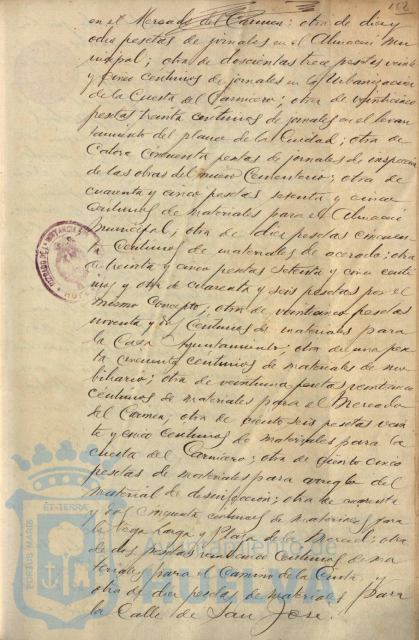 152
en el Mercado del Carmen; otra de diez y
ocho pesetas de jornales en el Almacen Mu-
nicipal; otra de doscientas trece pesetas veinte
y cinco centimos de jornales en la Urbanizacion
de la Cuesta del Carnicero; otra de veinticinco
pesetas treinta centimos de jornales en el levan
tamiento del plano de la Ciudad; otra de
catorce cincuenta pesetas de jornales de inspeccion
de las obras del nuevo Cementerio; otra de
cuarenta y cinco pesetas setenta y cinco
centimos de materiales para el Almacen
Municipal; otra de diez pesetas cincuen
ta centimos de materiales de acerado; otra
de treinta y cinco pesetas setenta y cinco centi
mos y otra de cuarenta y seis pesetas por el
mismo concepto; otra de veinticinco pesetas
noventa y dos centimos de materiales para
la Casa Ayuntamiento; otra de una pese
ta cincuenta centimos de materiales de mo
biliario; otra de veintiuna pesetas veinticinco
centimos de materiales para el Mercado
del Carmen; otra de ciento seis pesetas vein
te y cinco centimos de materiales para la
cuesta del Carnicero; otra de ciento cinco
pesetas de materiales para arreglo del
material de desinfeccion; otra de cuarenta
y dos cincuenta centimos de materiales para
la Vega Larga y Plaza de la Merced; otra
de dos pesetas centimos de ma
teriales para el Camino de la Cinta, y
otra de diez pesetas de materiales para
la Calle de San José.
PORTUS MARIS
ET TERRAE
Ayuntamiento de
HUELVA